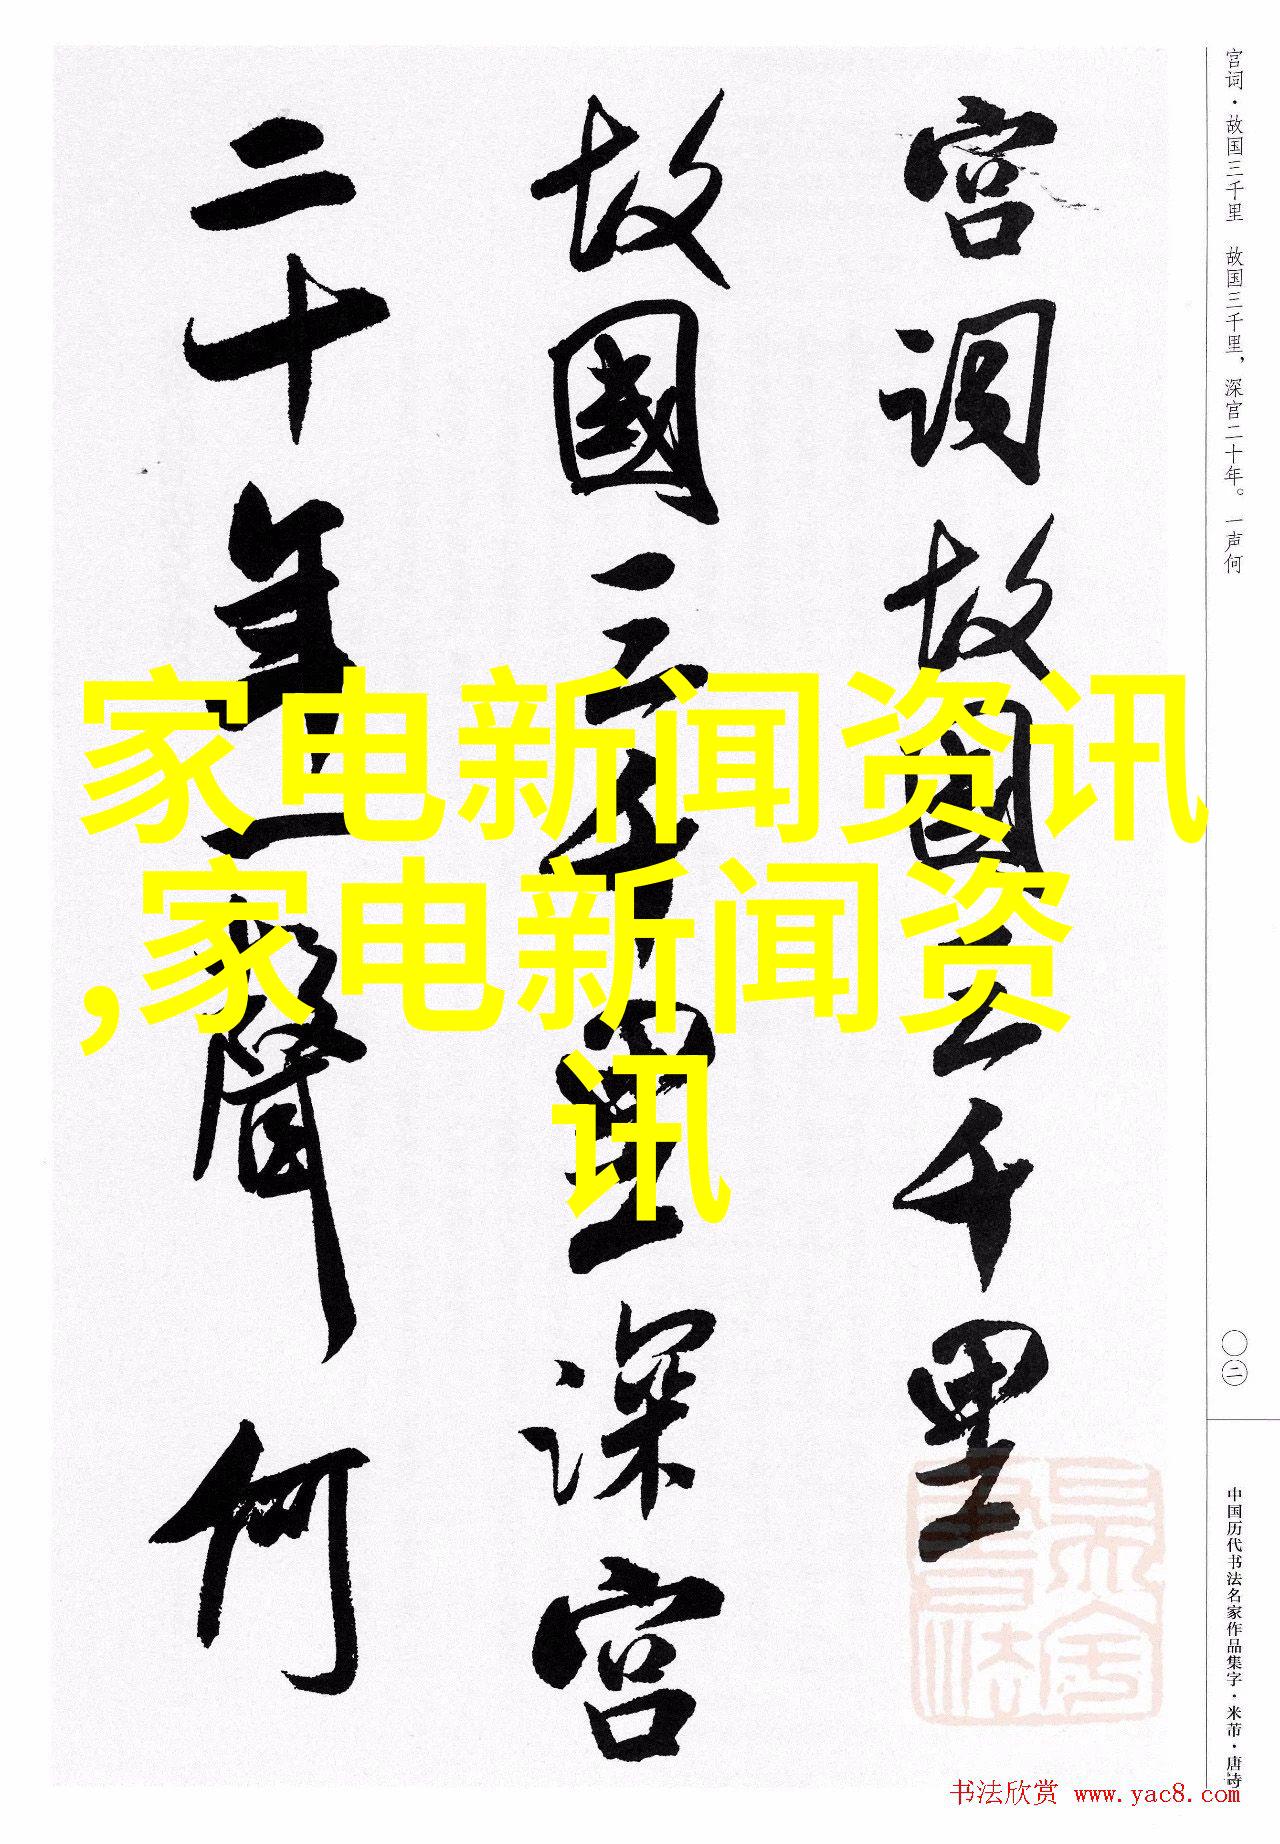 宫词·故国三千里　故国三千里，深宫二十年。一声何
宫词故国三千里
故國三千里深宫
二十年一聲何
家电新闻资讯
,家电新闻资
讯
〇二
中国历代书法名家作品集字·米芾·唐诗
书法欣赏 www.yac8.com